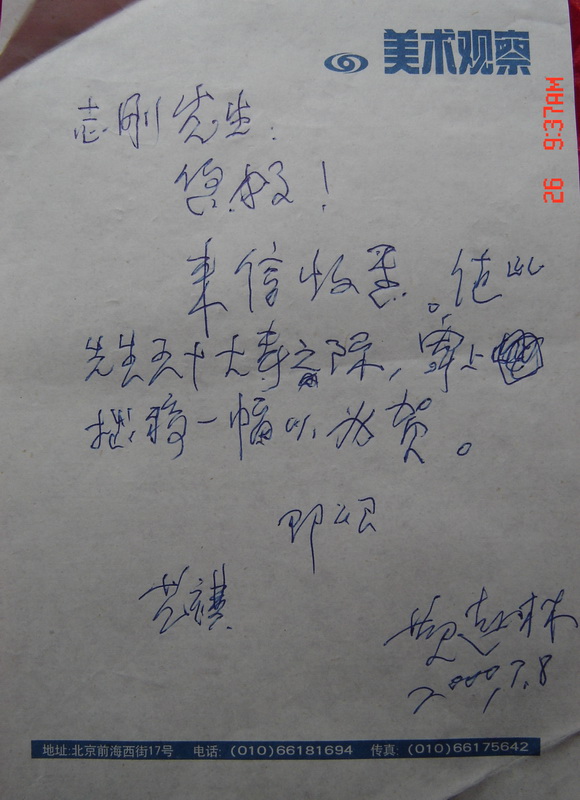 美术观察
26 9:37AM
志刚先生:
您好!
来信收悉。值此
先生五十大寿之际,寄上
拙稿一幅以为贺。
即颂
艺祺
2000.7.8
地址:北京前海西街17号 电话:(010)66181694 传真:(010)66175642